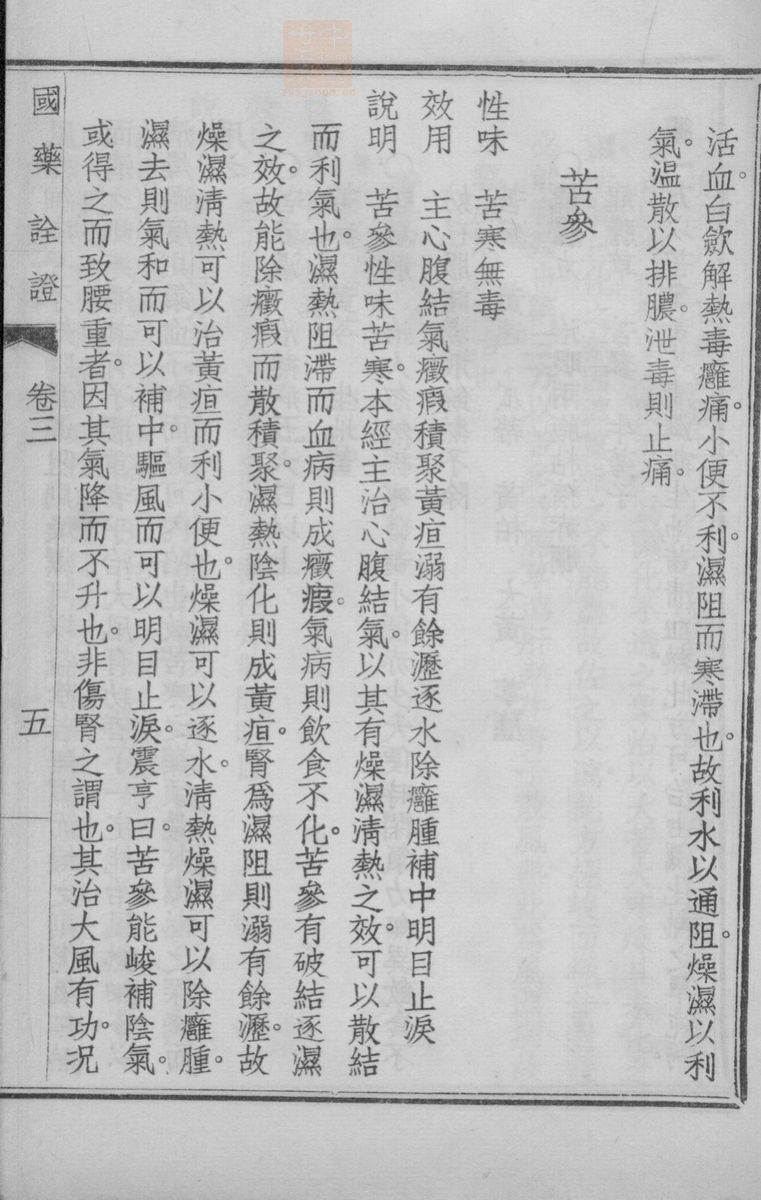 活血。白蘞解熱毒癰痛。小便不利。濕阻而寒滯也。故利水以通阻。燥濕以利
氣。温散以排膿。泄毒則止痛。
苦參
性味　苦寒無毒
效用　主心腹結氣癥瘕積聚黃疸溺有餘瀝逐水除癰腫補中明目止淚
說明　苦參性味苦寒。本經主治心腹結氣。以其有燥濕清熱之效。可以散結
而利氣也。濕熱阻滯而血病則成癥瘕。氣病則飲食不化。苦參有破結逐濕
之效。故能除癥瘕而散積聚。濕熱陰化則成黃疸。腎爲濕阻則溺有餘瀝。故
燥濕清熱可以治黃疸而利小便也。燥濕可以逐水。清熱燥濕可以除癰腫。
濕去則氣和而可以補中。驅風而可以明目止淚。震亨曰。苦參能峻補陰氣。
或得之而致腰重者。因其氣降而不升也。非傷腎之謂也。其治大風有功。況
國藥詮證　卷三　五